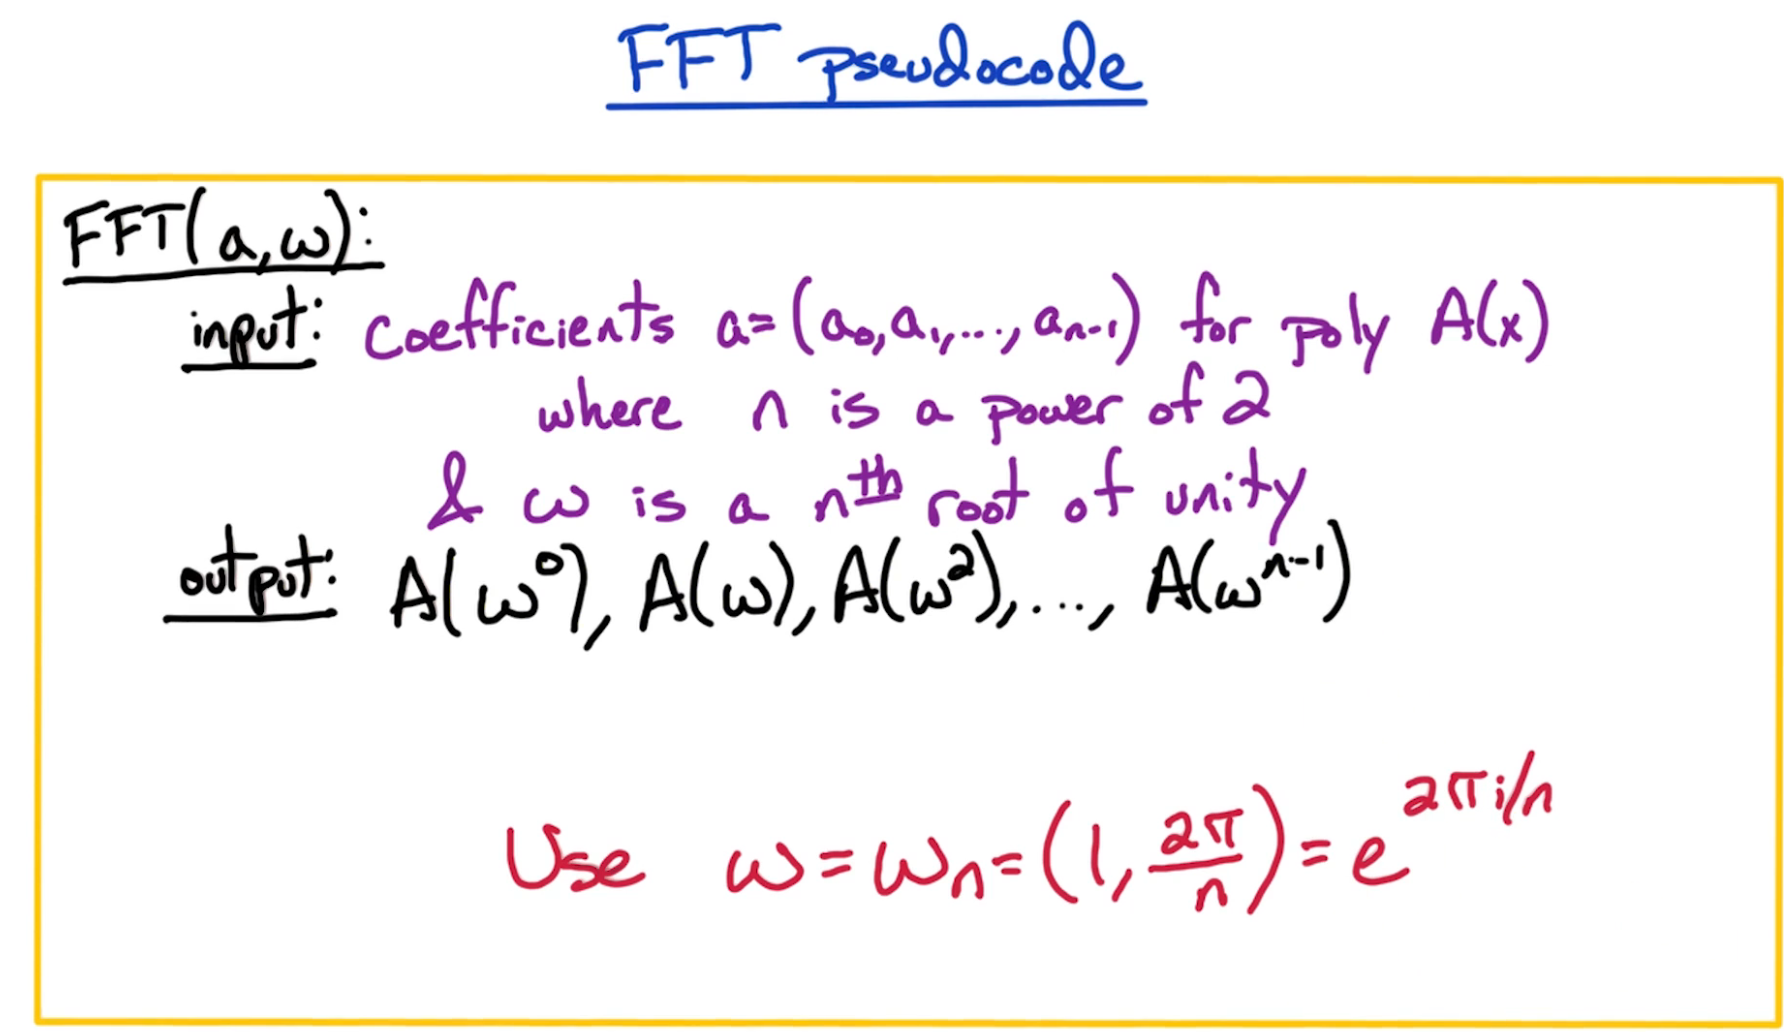 FFT pseudocode
FFT(a,ω):
input: coefficients a=(a₀,a₁,...,aₙ₋₁) for poly A(x)
where n is a power of 2
& ω is a nᵗʰ root of unity
output: A(ω⁰), A(ω), A(ω²),..., A(ωⁿ⁻¹)
Use ω = ωₙ = (1, 2π/n) = e^(2πi/n)